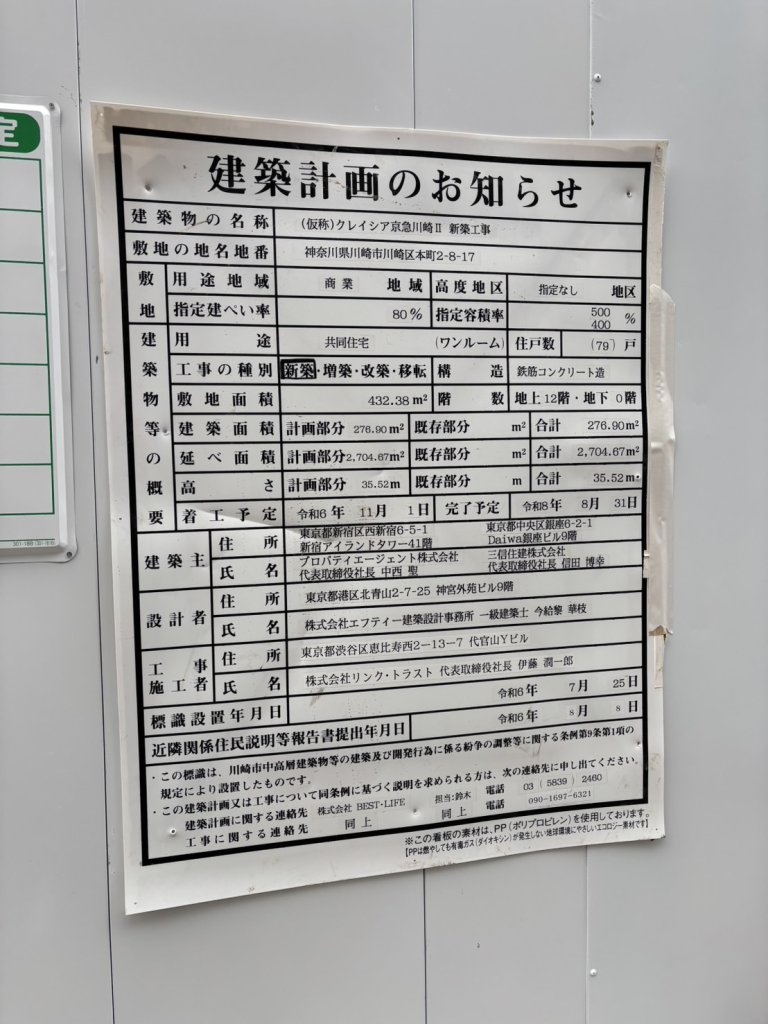 定
301-18B
建築計画のお知らせ
建築物の名称 (仮称)クレイシア京急川崎Ⅱ 新築工事
敷地の地名地番 神奈川県川崎市川崎区本町2-8-17
敷地 用途地域 商業 地域 高度地区 指定なし 地区
指定建ぺい率 80% 指定容積率 500 400 %
建築物等の概要 用途 共同住宅 (ワンルーム) 住戸数 (79)戸
工事の種別 新築・増築・改築・移転 構造 鉄筋コンクリート造
敷地面積 432.38m² 階数 地上12階・地下 0階
建築面積 計画部分 276.90m² 既存部分 m² 合計 276.90m²
延べ面積 計画部分 2,704.67m² 既存部分 m² 合計 2,704.67m²
高さ 計画部分 35.52m 既存部分 m 合計 35.52m
着工予定 令和6年 11月 1日 完了予定 令和8年 8月 31日
建築主 住所 東京都新宿区西新宿6-5-1 東京都中央区銀座6-2-1
新宿アイランドタワー41階 Daiwa銀座ビル9階
氏名 プロパティエージェント株式会社 三信住建株式会社
代表取締役社長 中西 聖 代表取締役社長 信田 博幸
設計者 住所 東京都港区北青山2-7-25 神宮外苑ビル9階
氏名 株式会社エフティー建築設計事務所 一級建築士 今給黎 華枝
工事施工者 住所 東京都渋谷区恵比寿西2-13-7 代官山Yビル
氏名 株式会社リンク・トラスト 代表取締役社長 伊藤 潤一郎
標識設置年月日 令和6年 7月 25日
近隣関係住民説明等報告書提出年月日 令和6年 8月 8日
・この標識は、川崎市中高層建築物等の建築及び開発行為に係る紛争の調整等に関する条例第9条第1項の
規定により設置したものです。
・この建築計画又は工事について同条例に基づく説明を求められる方は、次の連絡先に申し出てください。
建築計画に関する連絡先 株式会社 BEST・LIFE 担当:鈴木 電話 03(5839)2460
工事に関する連絡先 同上 同上 電話 090-1697-6321
※この看板の素材は、PP(ポリプロピレン)を使用しております。
【PPは燃やしても有毒ガス(ダイオキシン)が発生しない地球環境にやさしいエコロジー素材です】